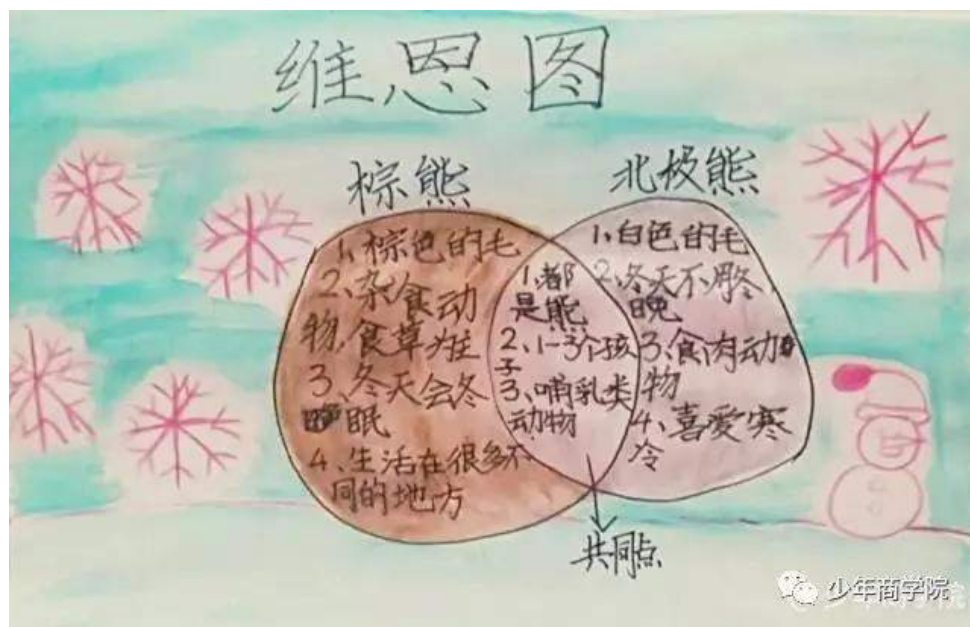 维恩图
棕熊
1、棕色的毛
2、杂食动
物,食草为主
3、冬天会冬
眠
4、生活在很多不
同的地方
1、都
是熊
2、1-3个孩
子
3、哺乳类
动物
北极熊
1、白色的毛
2、冬天不用冬
眠
3、食肉动
物
4、喜爱寒
冷
共同点
少年商学院